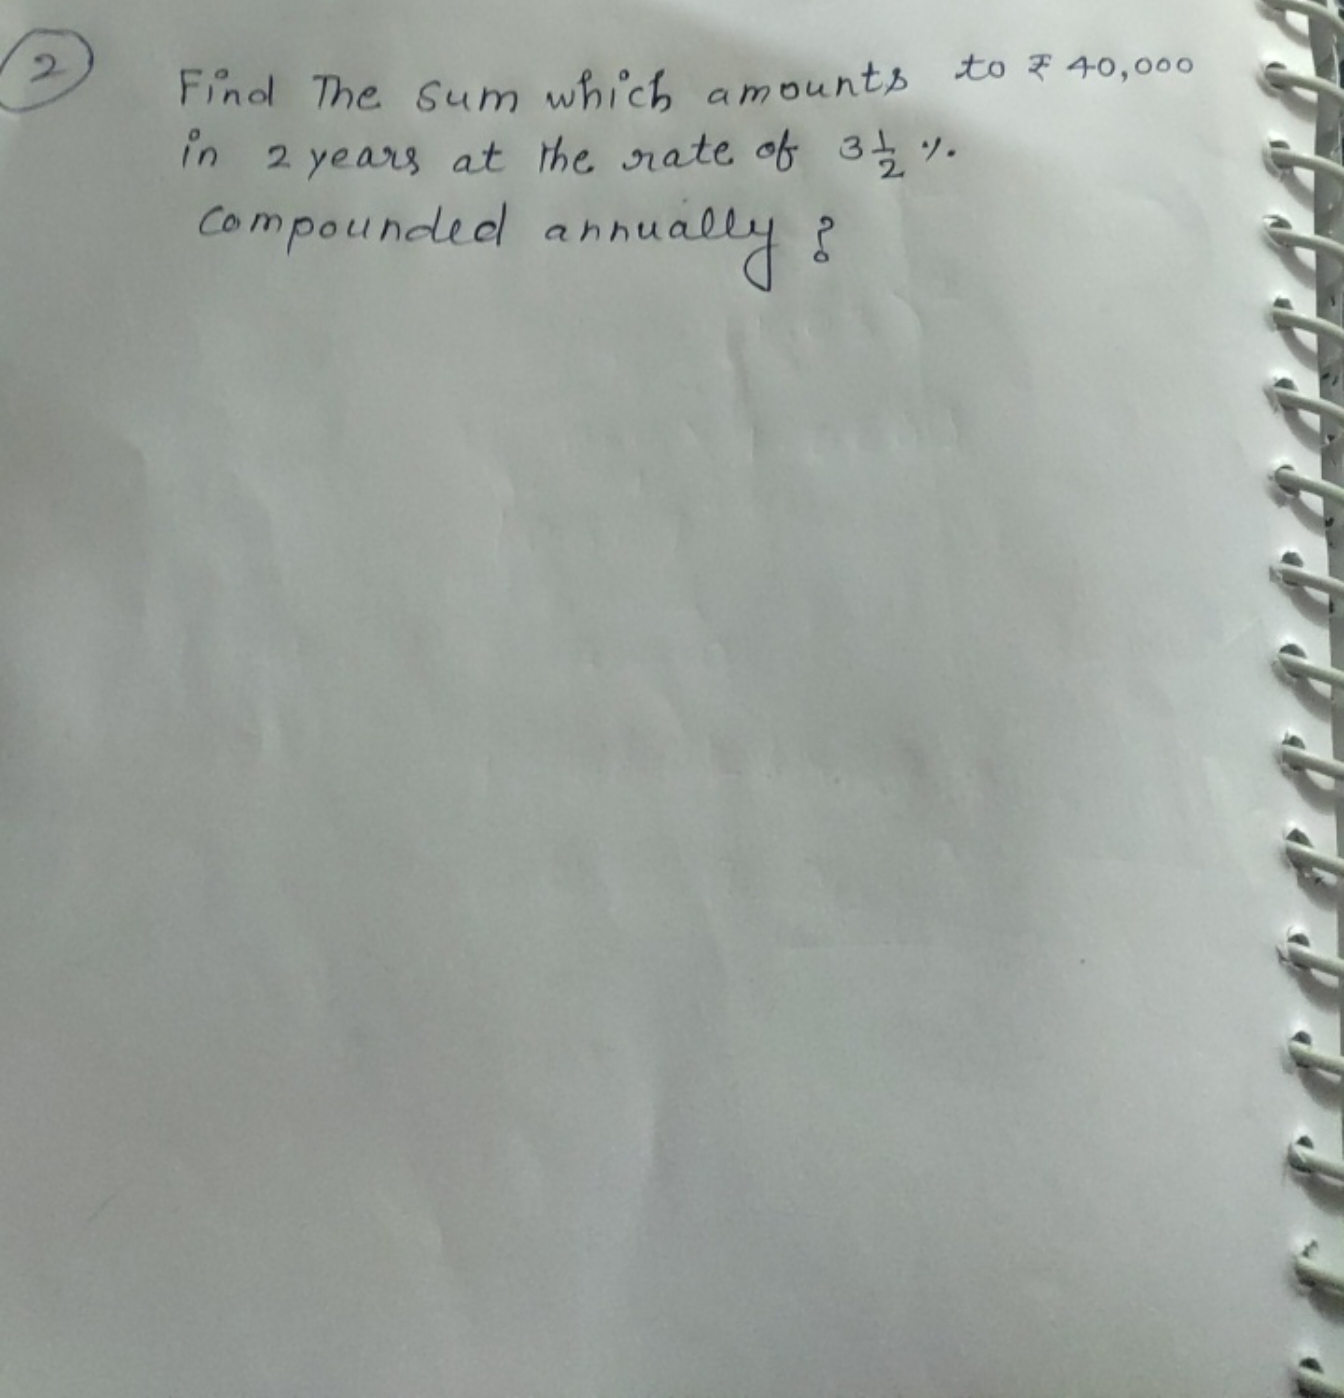 2 Find The sum which amounts to ₹ 40,000
in 2 years at the rate of 3 1/2 %.
Compounded annually ?